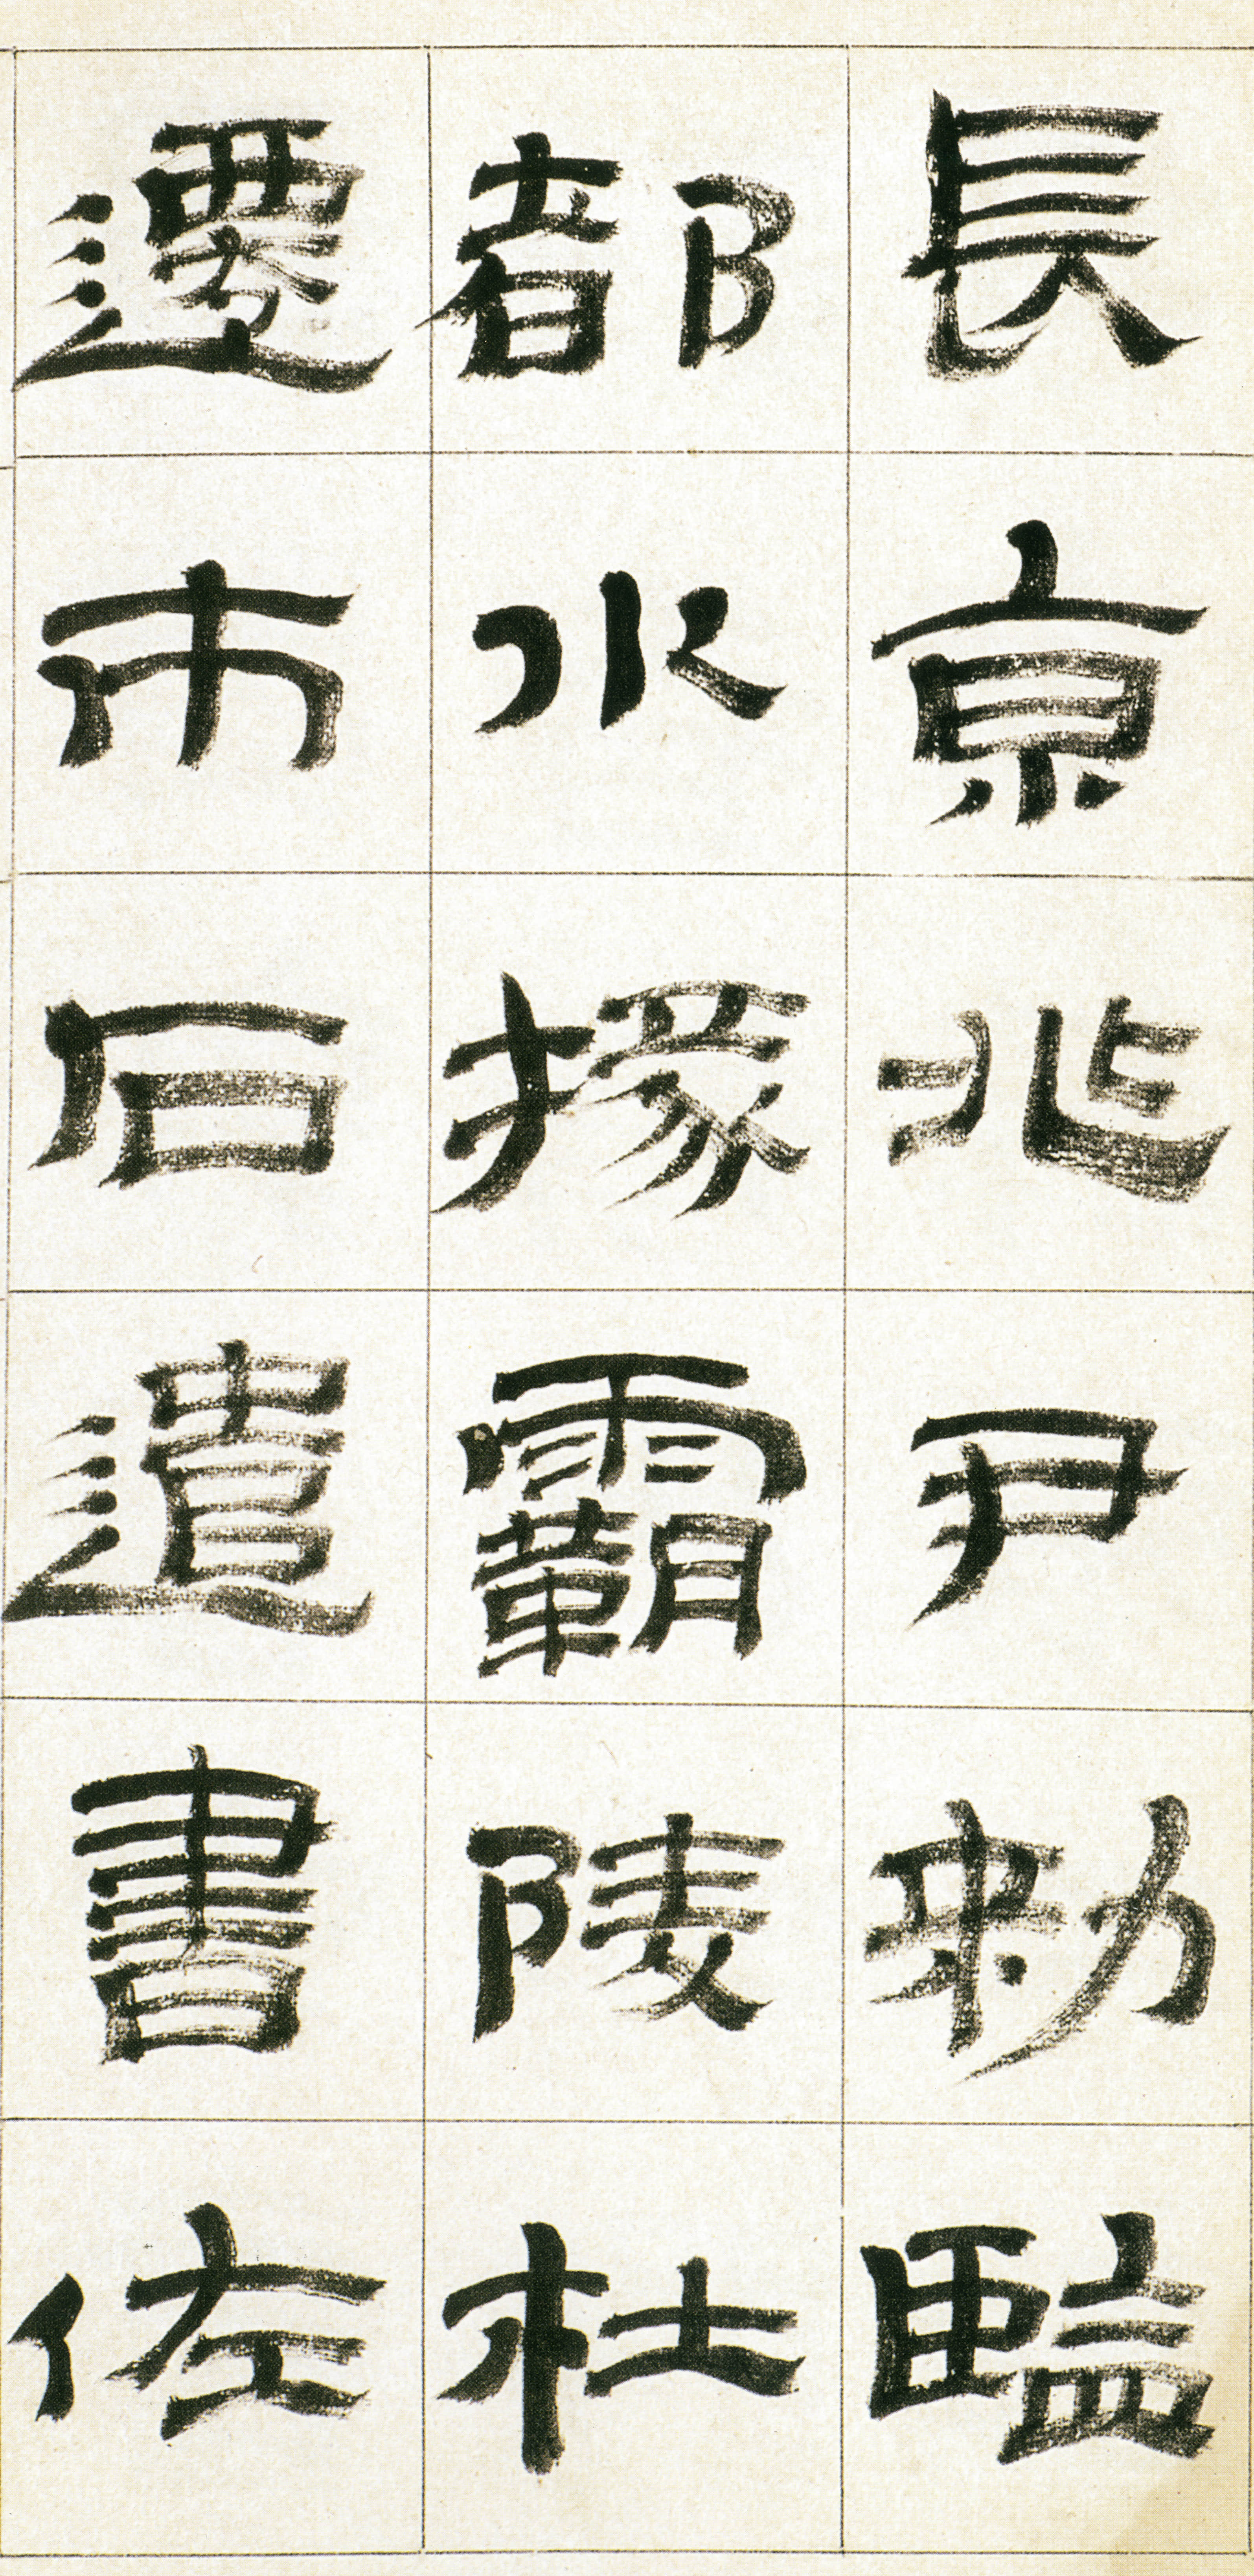 長京兆尹勑監
都水掾霸陵杜
遷市石遣書佐